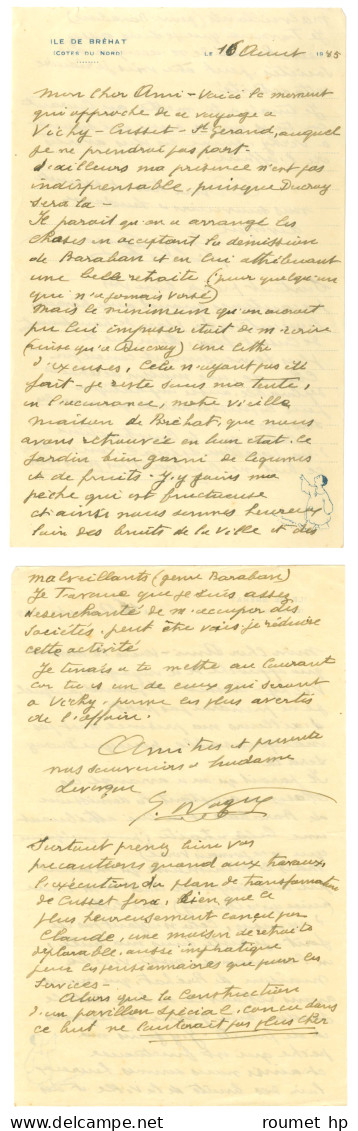 ILE DE BRÉHAT
(COTES DU NORD)
LE 16 Août 19
Mon Cher Ami - Voici le moment
qui approche de ce voyage à
Vichy - Cusset - St Gérand, auquel
je ne prendrai pas part.
D'ailleurs ma présence n'est pas
indispensable, puisque Ducray
sera là -
Il parait qu'on a arrangé les
choses en acceptant la démission
de Baraban et en lui attribuant
une belle retraite (pour quelqu'un
qui n'a jamais versé)
Mais le minimum qu'on aurait
pu lui imposer était de m'écrire
(ainsi qu'à Ducray) une lettre
d'excuses, Cela n'ayant pas été
fait - je reste sous ma tente,
en l'occurence, notre vieille
maison de Bréhat, que nous
avons retrouvée en bon état. Le
jardin bien garni de légumes
et de fruits - J'y fais ma
pêche qui est fructueuse
et ainsi nous sommes heureux
loin des bruits de la ville et des
malveillants (genre Baraban)
Je trouve que je suis assez
désenchanté de m'occuper des
Sociétés. peut être vais-je réduire
cette activité
Je tenais à te mettre au courant
car tu es un de ceux qui seront
à Vichy, parmi les plus avertis
de l'affaire.
Amitiés et présente
nos souvenirs à Madame
Surtout prenez bien vos
précautions quand aux travaux,
l'exécution du plan de transformation
de Cusset fera, bien que le
plus heureusement conçu par
Claude, une maison de retraite
déplorable, aussi
pour les pensionnaires que pour les
Services -
Alors que la Construction
d'un pavillon spécial, conçu dans
ce but ne coûterait pas plus cher
© roumet hp
delcampe.net